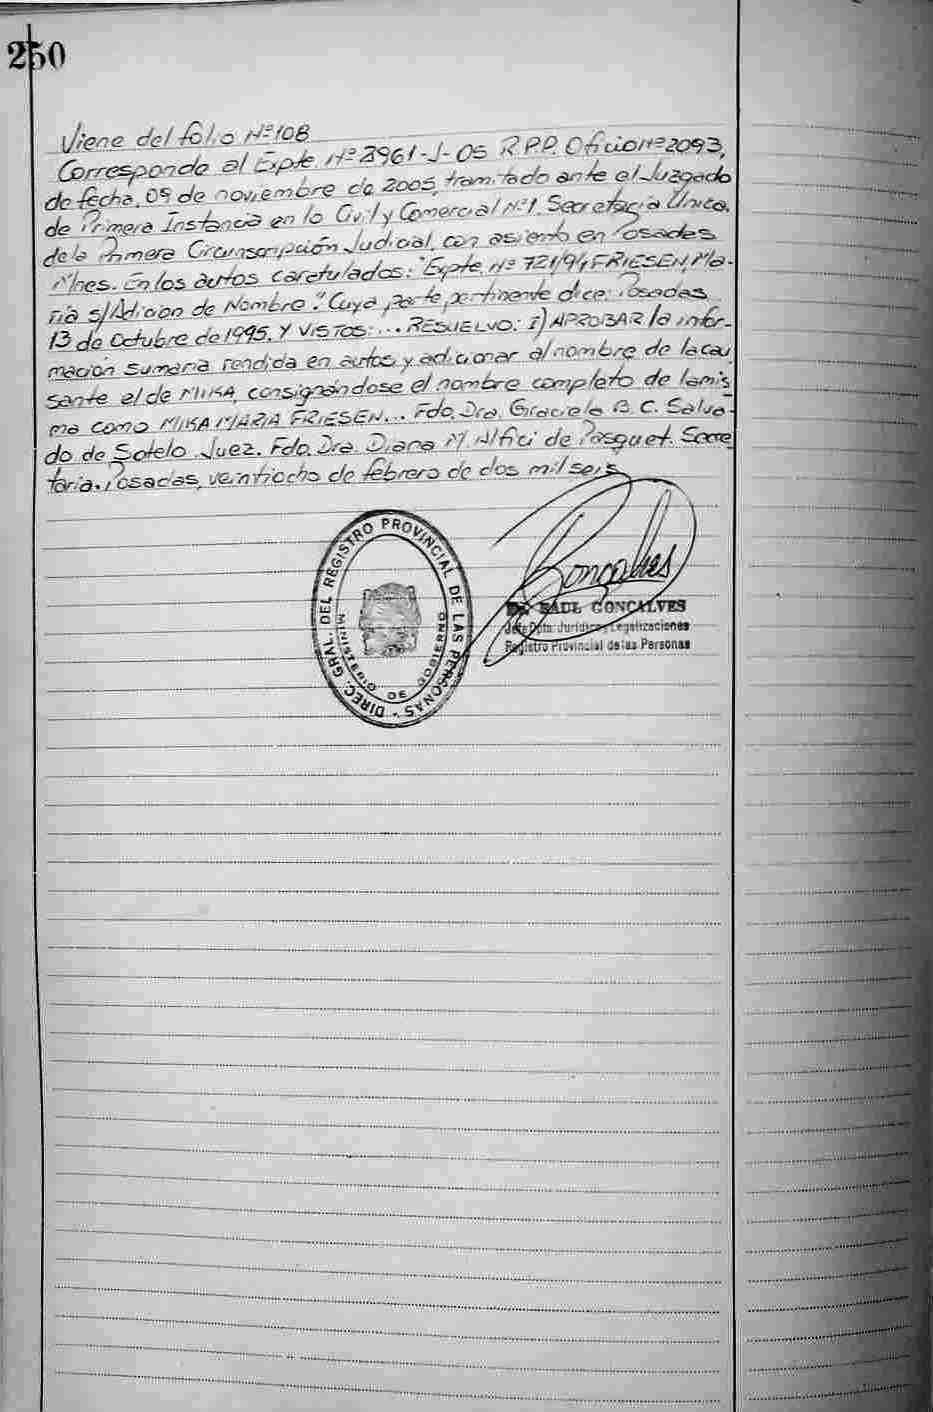 250
Viene del folio Nº 108
Corresponde al Expte. Nº 3961-J-05 R.P.P. Oficio Nº 2093,
de fecha, 09 de noviembre de 2005, tramitado ante el Juzgado
de Primera Instancia en lo Civil y Comercial Nº 1. Secretaria Unica.
de la Primera Circunscripción Judicial, con asiento en Posadas
Mnes. En los autos caratulados: "Expte. Nº 721/94 FRIESEN, Ma-
ria s/Adicion de Nombre". Cuya parte pertinente dice: Posadas
13 de Octubre de 1995. Y VISTOS: ... RESUELVO: I) APROBAR la infor-
macion sumaria rendida en autos y adicionar al nombre de la cau
sante el de MIKA, consignandose el nombre completo de la mis
ma como MIKA MARIA FRIESEN... Fdo. Dra. Graciela B. C. Salva-
do de Sotelo. Juez. Fdo. Dra. Diana M. Alfici de Pasquet. Secre
taria. Posadas, veintiocho de febrero de dos mil seis
DIREC. GRAL. DEL REGISTRO PROVINCIAL DE LAS PERSONAS -
MINISTERIO DE GOBIERNO
Goncalves
RAUL GONCALVES
Jefe Dpto. Jurídico y Legalizaciones
Registro Provincial de las Personas